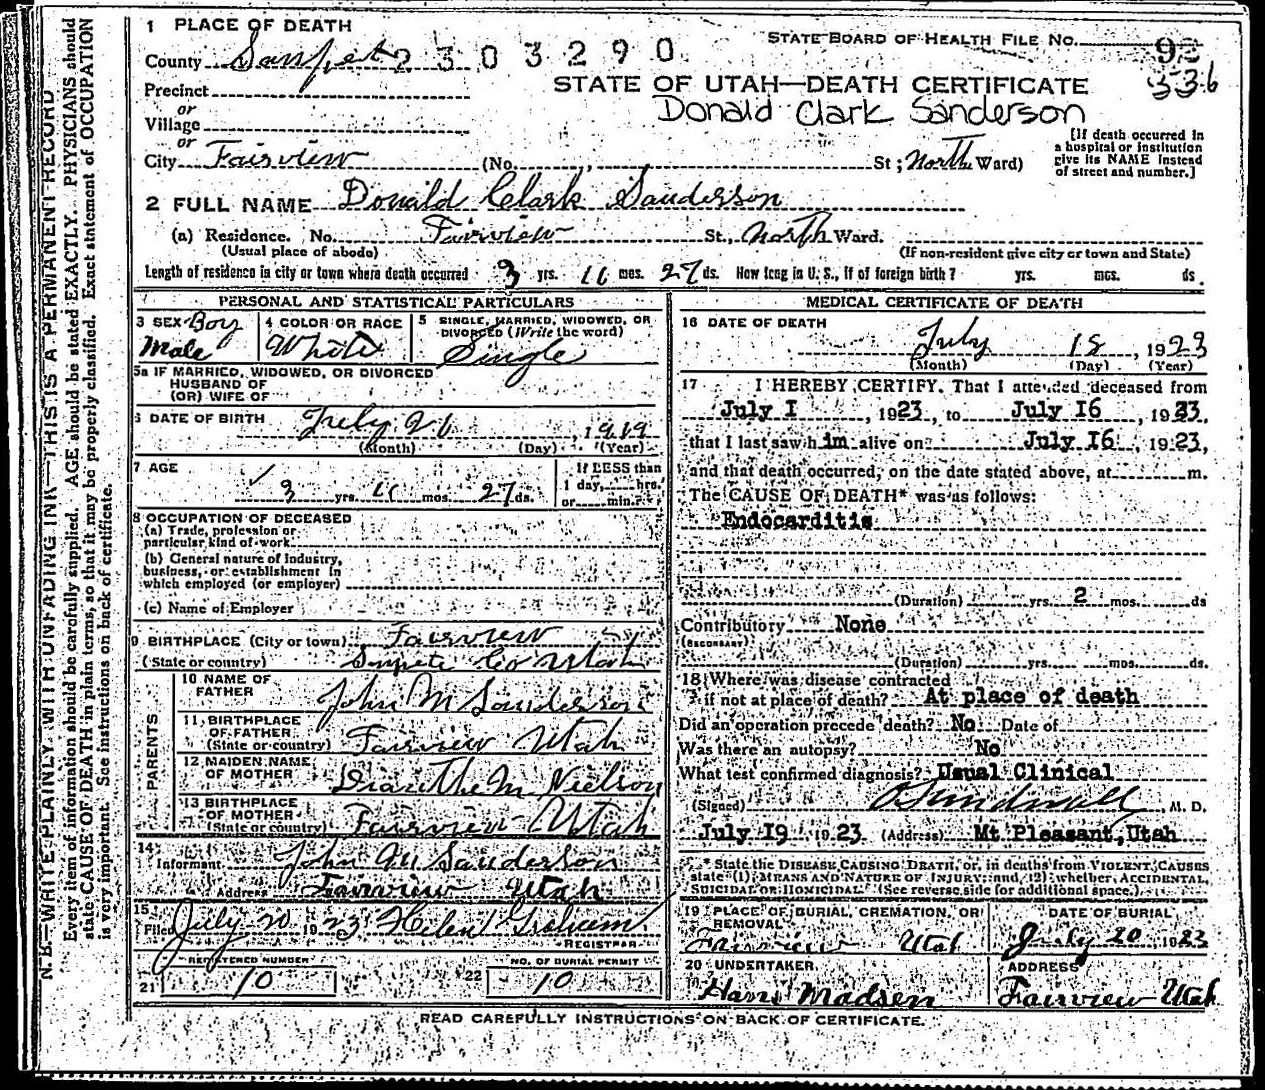 1 PLACE OF DEATH
STATE BOARD OF HEALTH FILE NO. 92
County Sanpete 2303290
336
STATE OF UTAH—DEATH CERTIFICATE
Precinct
Donald Clark Sanderson
or
Village
or
City Fairview (No. , St; North Ward)
[If death occurred in a hospital or institution give its NAME instead of street and number.]
2 FULL NAME Donald Clark Sanderson
(a) Residence. No. Fairview St., North Ward.
(Usual place of abode) (If non-resident give city or town and State)
Length of residence in city or town where death occurred 3 yrs. 11 mos. 27 ds. How long in U. S., if of foreign birth? yrs. mos. ds.
PERSONAL AND STATISTICAL PARTICULARS
3 SEX Boy Male
4 COLOR OR RACE White
5 SINGLE, MARRIED, WIDOWED, OR DIVORCED (Write the word) Single
5a IF MARRIED, WIDOWED, OR DIVORCED
HUSBAND OF
(OR) WIFE OF
6 DATE OF BIRTH July 21, 1919
(Month) (Day) (Year)
7 AGE
3 yrs. 11 mos. 27 ds.
If LESS than
1 day, hrs.
or min.
8 OCCUPATION OF DECEASED
(a) Trade, profession or
particular kind of work
(b) General nature of industry,
business, or establishment in
which employed (or employer)
(c) Name of Employer
9 BIRTHPLACE (City or town) Fairview
(State or country) Sanpete Co Utah
PARENTS
10 NAME OF FATHER John M Sanderson
11 BIRTHPLACE OF FATHER (State or country) Fairview Utah
12 MAIDEN NAME OF MOTHER Diantha M Nielson
13 BIRTHPLACE OF MOTHER (State or country) Fairview Utah
14 Informant John M Sanderson
Address Fairview Utah
15 Filed July 20 1923 Helen Graham
REGISTRAR
REGISTERED NUMBER
21 10
NO. OF BURIAL PERMIT
22 10
MEDICAL CERTIFICATE OF DEATH
16 DATE OF DEATH
July 18, 1923
(Month) (Day) (Year)
17 I HEREBY CERTIFY, That I attended deceased from
July 1, 1923, to July 16 1923.
that I last saw him alive on July 16, 1923,
and that death occurred, on the date stated above, at m.
The CAUSE OF DEATH* was as follows:
Endocarditis
(Duration) yrs. 2 mos. ds
Contributory None
(SECONDARY)
(Duration) yrs. mos. ds.
18 Where was disease contracted
if not at place of death? At place of death
Did an operation precede death? No Date of
Was there an autopsy? No
What test confirmed diagnosis? Usual Clinical
(Signed) O Sundwall, M. D.
July 19 1923 (Address) Mt Pleasant, Utah
* State the DISEASE CAUSING DEATH, or, in deaths from VIOLENT CAUSES
state (1) MEANS AND NATURE OF INJURY: and (2) whether ACCIDENTAL,
SUICIDAL OR HOMICIDAL. (See reverse side for additional space.)
19 PLACE OF BURIAL, CREMATION, OR REMOVAL
Fairview Utah
DATE OF BURIAL
July 20 1923
20 UNDERTAKER
Hans Madsen
ADDRESS
Fairview Utah
READ CAREFULLY INSTRUCTIONS ON BACK OF CERTIFICATE.
N. B.—WRITE PLAINLY WITH UNFADING INK—THIS IS A PERMANENT RECORD
Every item of information should be carefully supplied. AGE should be stated EXACTLY. PHYSICIANS should
state CAUSE OF DEATH in plain terms, so that it may be properly classified. Exact statement of OCCUPATION
is very important. See instructions on back of certificate.